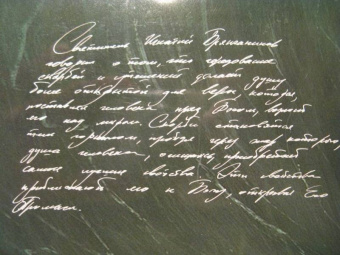 Святитель Игнатий Брянчанинов
говорил о том, что чередование
скорбей и утешений делает душу
более открытой для веры, которая,
поставляя человека пред Богом, возносит
его над миром. Скорби становятся
тем горнилом, пройдя через жар которого,
душа человека, очищаясь, приобретает
самые лучшие свойства. Эти свойства
приближают его к Богу, открывая Его
Промысл.